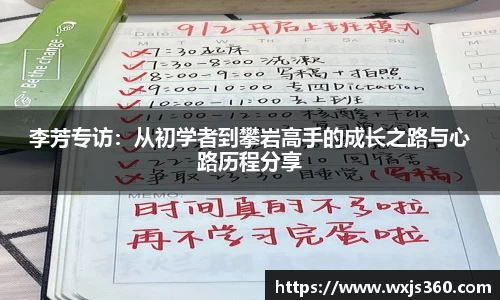 9/2开启上班模式
Be the change.
DATE
7:30起床
7:30-8:00洗漱
8:00-9:00写稿+拍照
9:00-10:00专四Dictation
10:00-11:00去上班
李芳专访：从初学者到攀岩高手的成长之路与心
路历程分享
争取23:30睡觉(写稿)
时间真的不多啦
再不学习完蛋啦
https://www.wxjs360.com